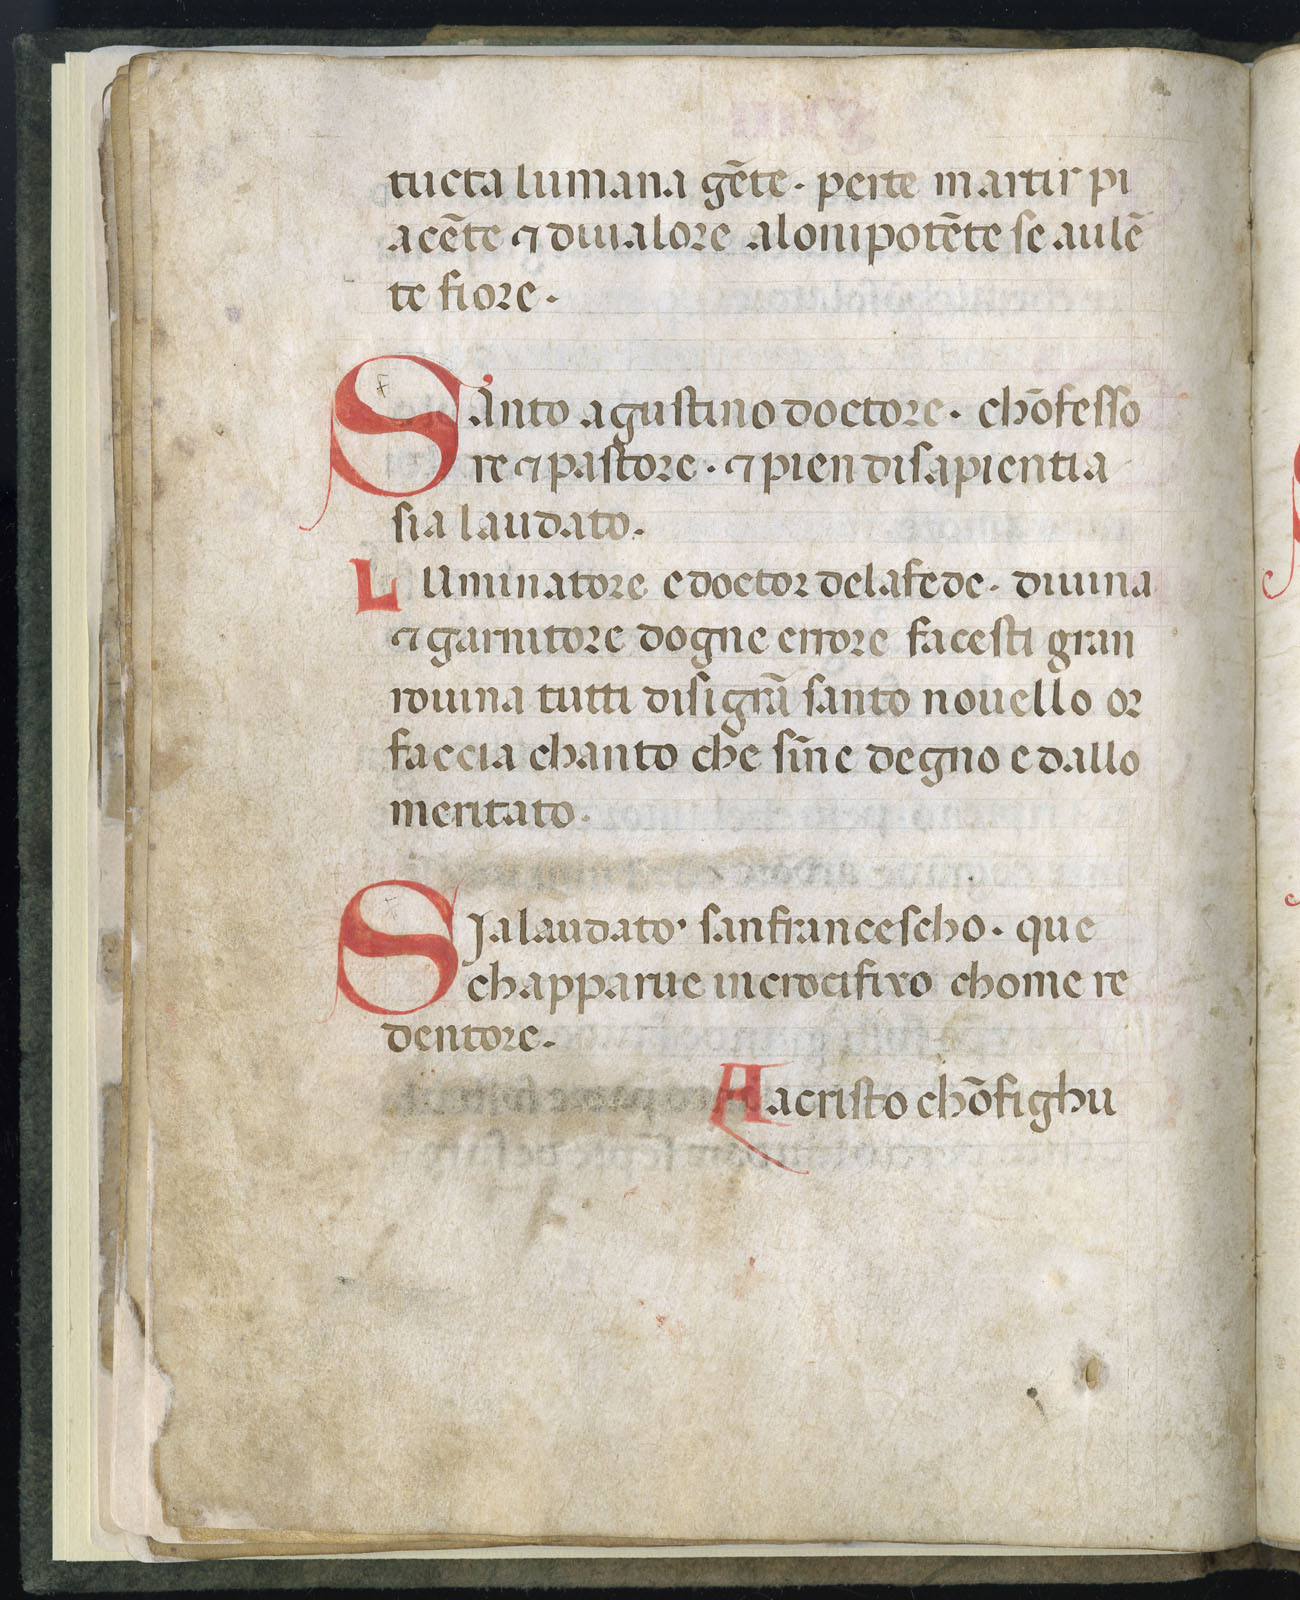 tucta lumana gēte · perte martir pi
acēte ⁊ diualore alonipotēte se aulē
te fiore ·
Santo agustino doctore · chōfesso
re ⁊ pastore · ⁊ pien disapientia
sia laudato ·
Lluminatore e doctor delafede · diuina
⁊ guarnitore dogne errore facesti gran
rouina tutti disigrā santo nouello or
faccia chanto che sīne degno e dallo
meritato ·
Sia laudato sanfrancescho · que
chapparue incrocifixo chome re
dentore ·
A acristo chōfighu